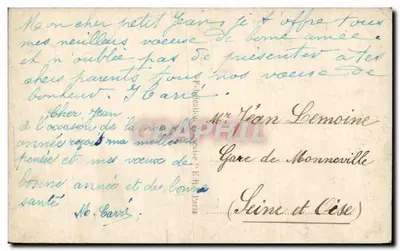 Mon cher petit Jean, je t'offre tous
mes meilleurs voeuse de bonne année
et n'oublie pas de présenter à tes
chers parents tous nos voeuse de
bonheur. J Carré
Cher Jean
de l'occasion de la nouvelle
année reçois ma meilleure
pensée et mes voeux de
bonne année et de bonne
santé
M. Carré
Mr Jean Lemoine
Gare de Monneville
(Seine et Oise)